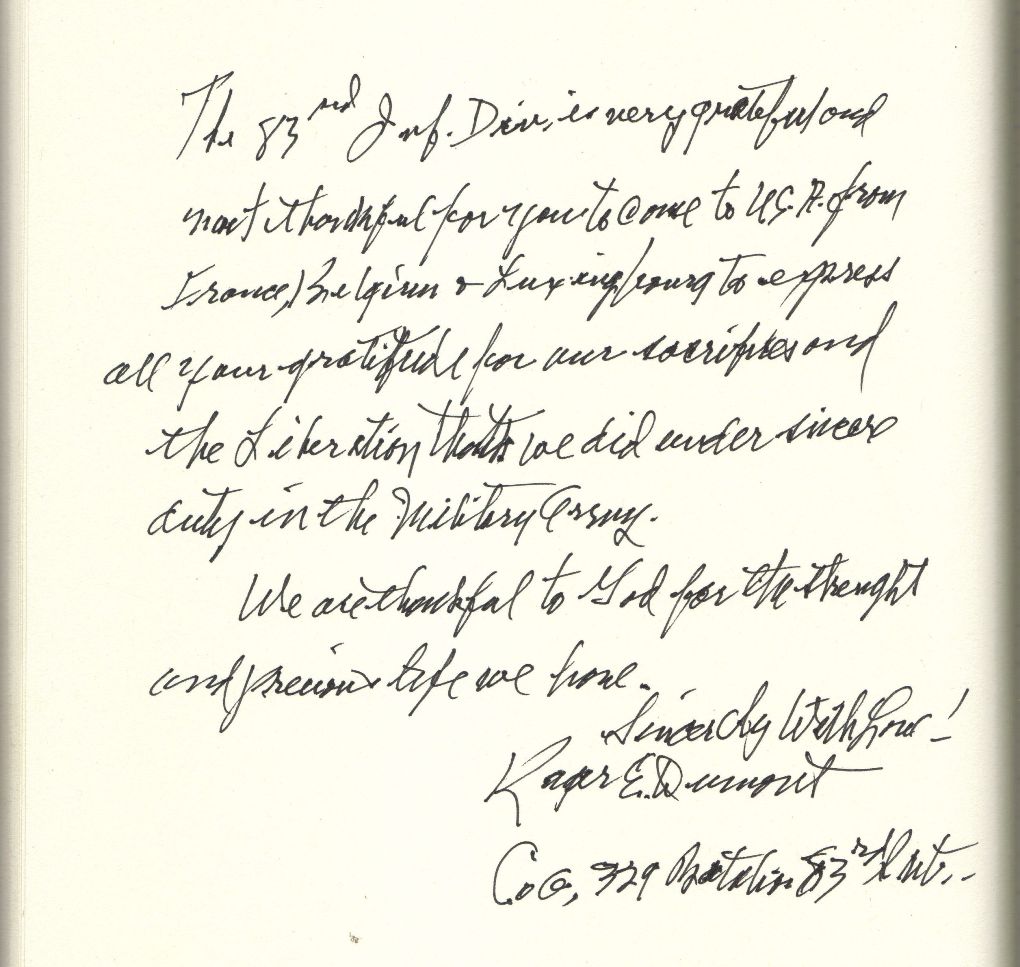 The 83rd Inf. Div. is very grateful and
most thankful for you to come to U.S.A. from
France, Belgium & Luxemgbourg to express
all your gratitude for our sacrifices and
the Liberation that we did under sincere
duty in the Military Army.
We are thankful to God for the strenght
and precious life we have.
Sincerely With Love!
Roger E. Dumont
Co G, 329 83rd